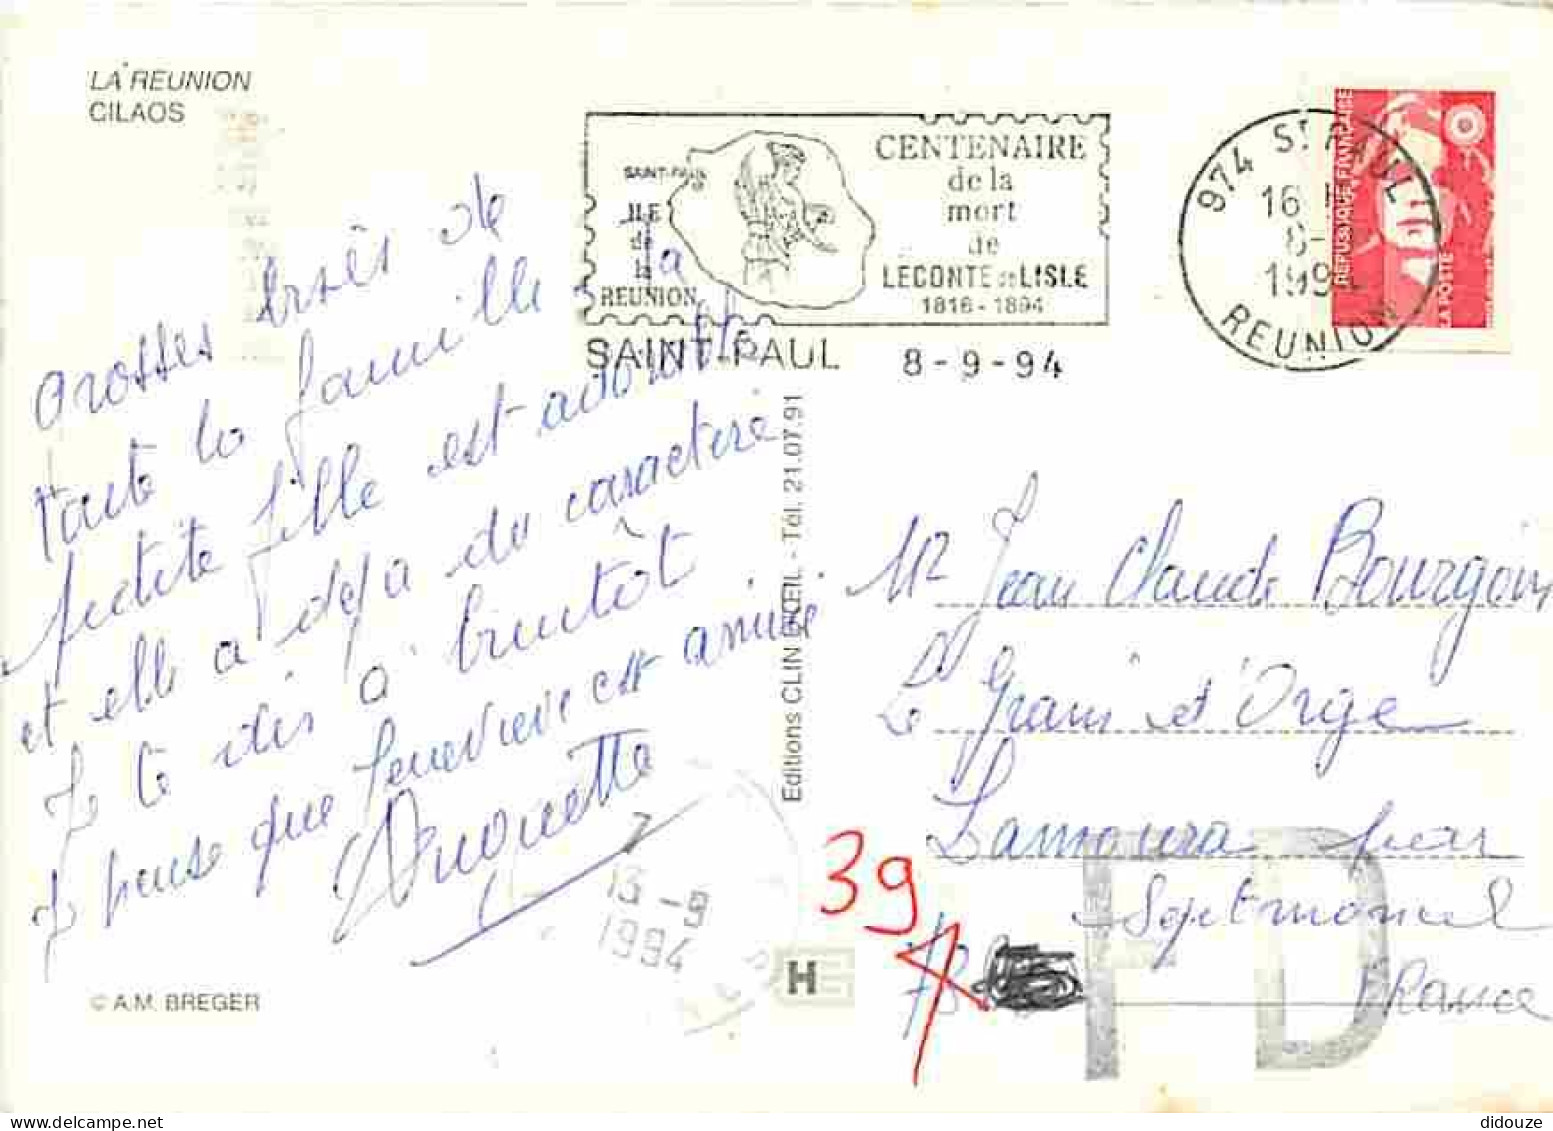 LA REUNION
CILAOS
SAINT-PAUL
ILE
de
la
REUNION
CENTENAIRE
de la
mort
de
LECONTE de LISLE
1818 - 1894
SAINT-PAUL 8-9-94
974 ST PAUL
16
8-
199
REUNION
REPUBLIQUE FRANÇAISE
LA POSTE
Grosses bisês de
toute la famille la
petite fille est adorable
et elle a déja du caractère
Je te dis a bientôt
Je pense que Genevieve est amie
13 -9
1994
© A.M. BREGER
Editions CLIN D'ŒIL - Tél. 21.07.91
Mr Jean Claude Bourgoin
Le Grain d'Orge
Lamoura par
Septmoncel
France
39
H
FD
didouze